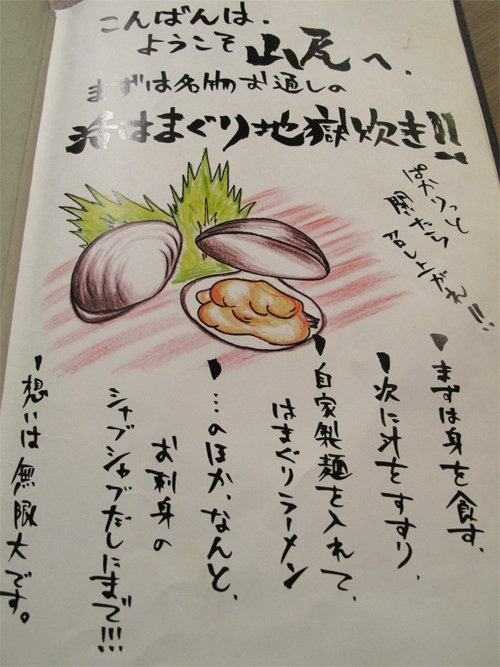 こんばんは、
ようこそ山尾へ、
まずは名物お通しの
活はまぐり地獄炊き!!
ぱかりっと
開たら
召し上がれ!!
まずは身を食す、
次に汁をすすり、
自家製麺を入れて、
はまぐりラーメン
…のほか、なんと、
お刺身の
シャブシャブだしにまで!!!
想いは無限大です。